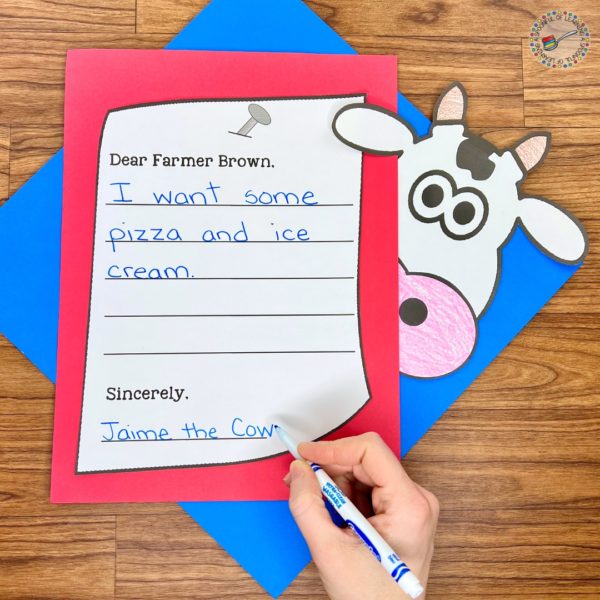 Dear Farmer Brown,
I want some
pizza and ice
cream.
Sincerely,
Jaime the Cow